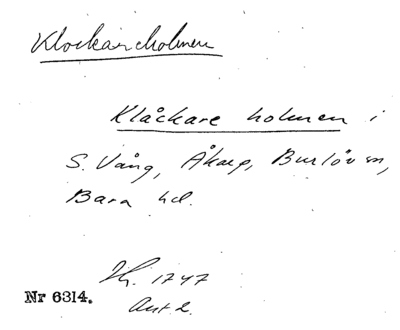 Klockareholmen
Klåckare holmen i
S. Vång, Åkarp, Burlöv sn,
Bara hd.
Nr 6314.
1747
Akt 2.